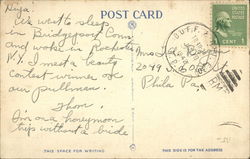 Hiya.
POST CARD
We went to sleep
in Bridgeport Conn
and woke in Rochester
N.Y. I met a beauty
contest winner on
our pullman.
Thom.
I'm on a honeymoon
trip without a bride
2049
Phila Pa
BUFFALO
1 CENT 1
THIS SPACE FOR WRITING
THIS SIDE IS FOR THE ADDRESS